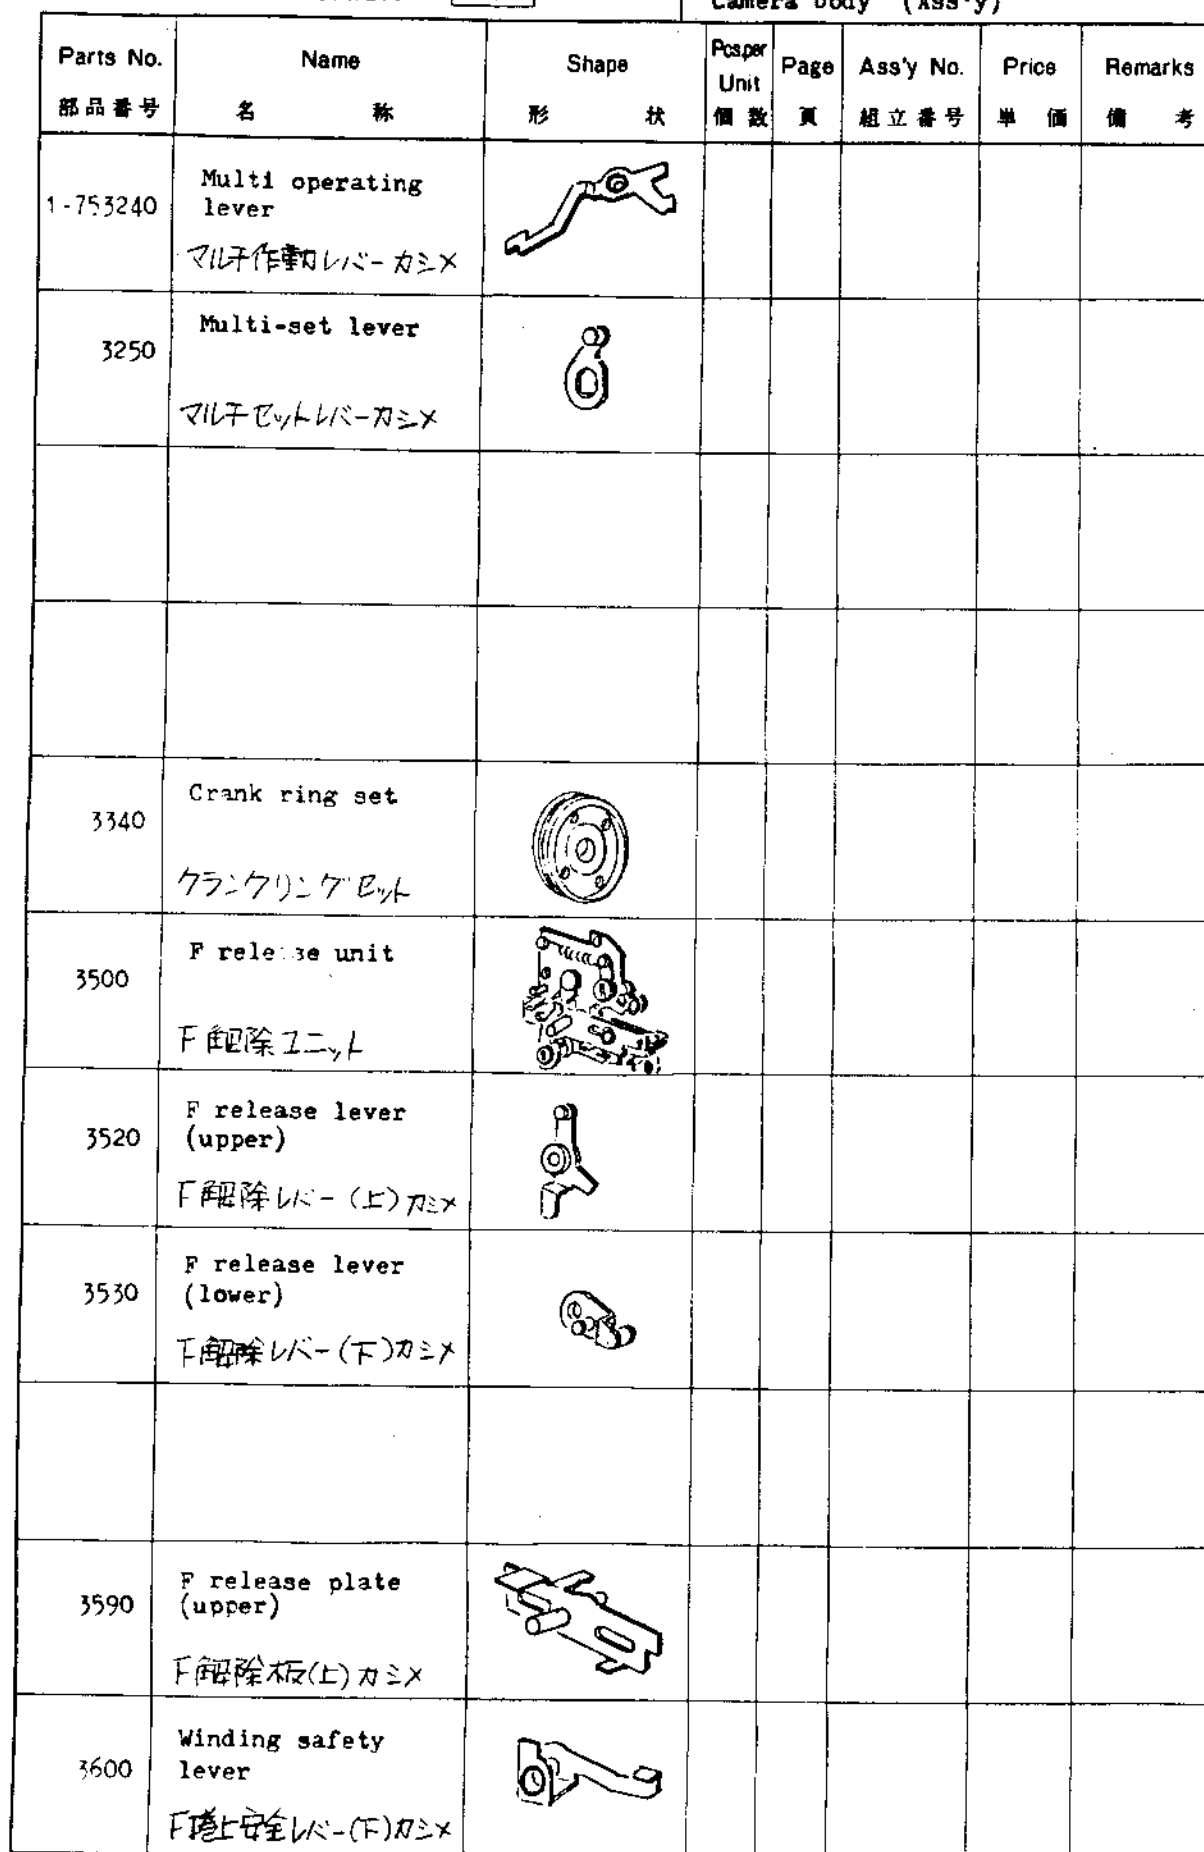 Camera body (Ass'y)
Parts No.
部品番号
Name
名 称
Shape
形 状
Pcs.per
Unit
個数
Page
頁
Ass'y No.
組立番号
Price
単 価
Remarks
備 考
1-753240
Multi operating
lever
マルチ作動レバーカシメ
3250
Multi-set lever
マルチセットレバーカシメ
3340
Crank ring set
クランクリングセット
3500
F release unit
F解除ユニット
3520
F release lever
(upper)
F解除レバー(上)カシメ
3530
F release lever
(lower)
F解除レバー(下)カシメ
3590
F release plate
(upper)
F解除板(上)カシメ
3600
Winding safety
lever
F捲上安全レバー(下)カシメ